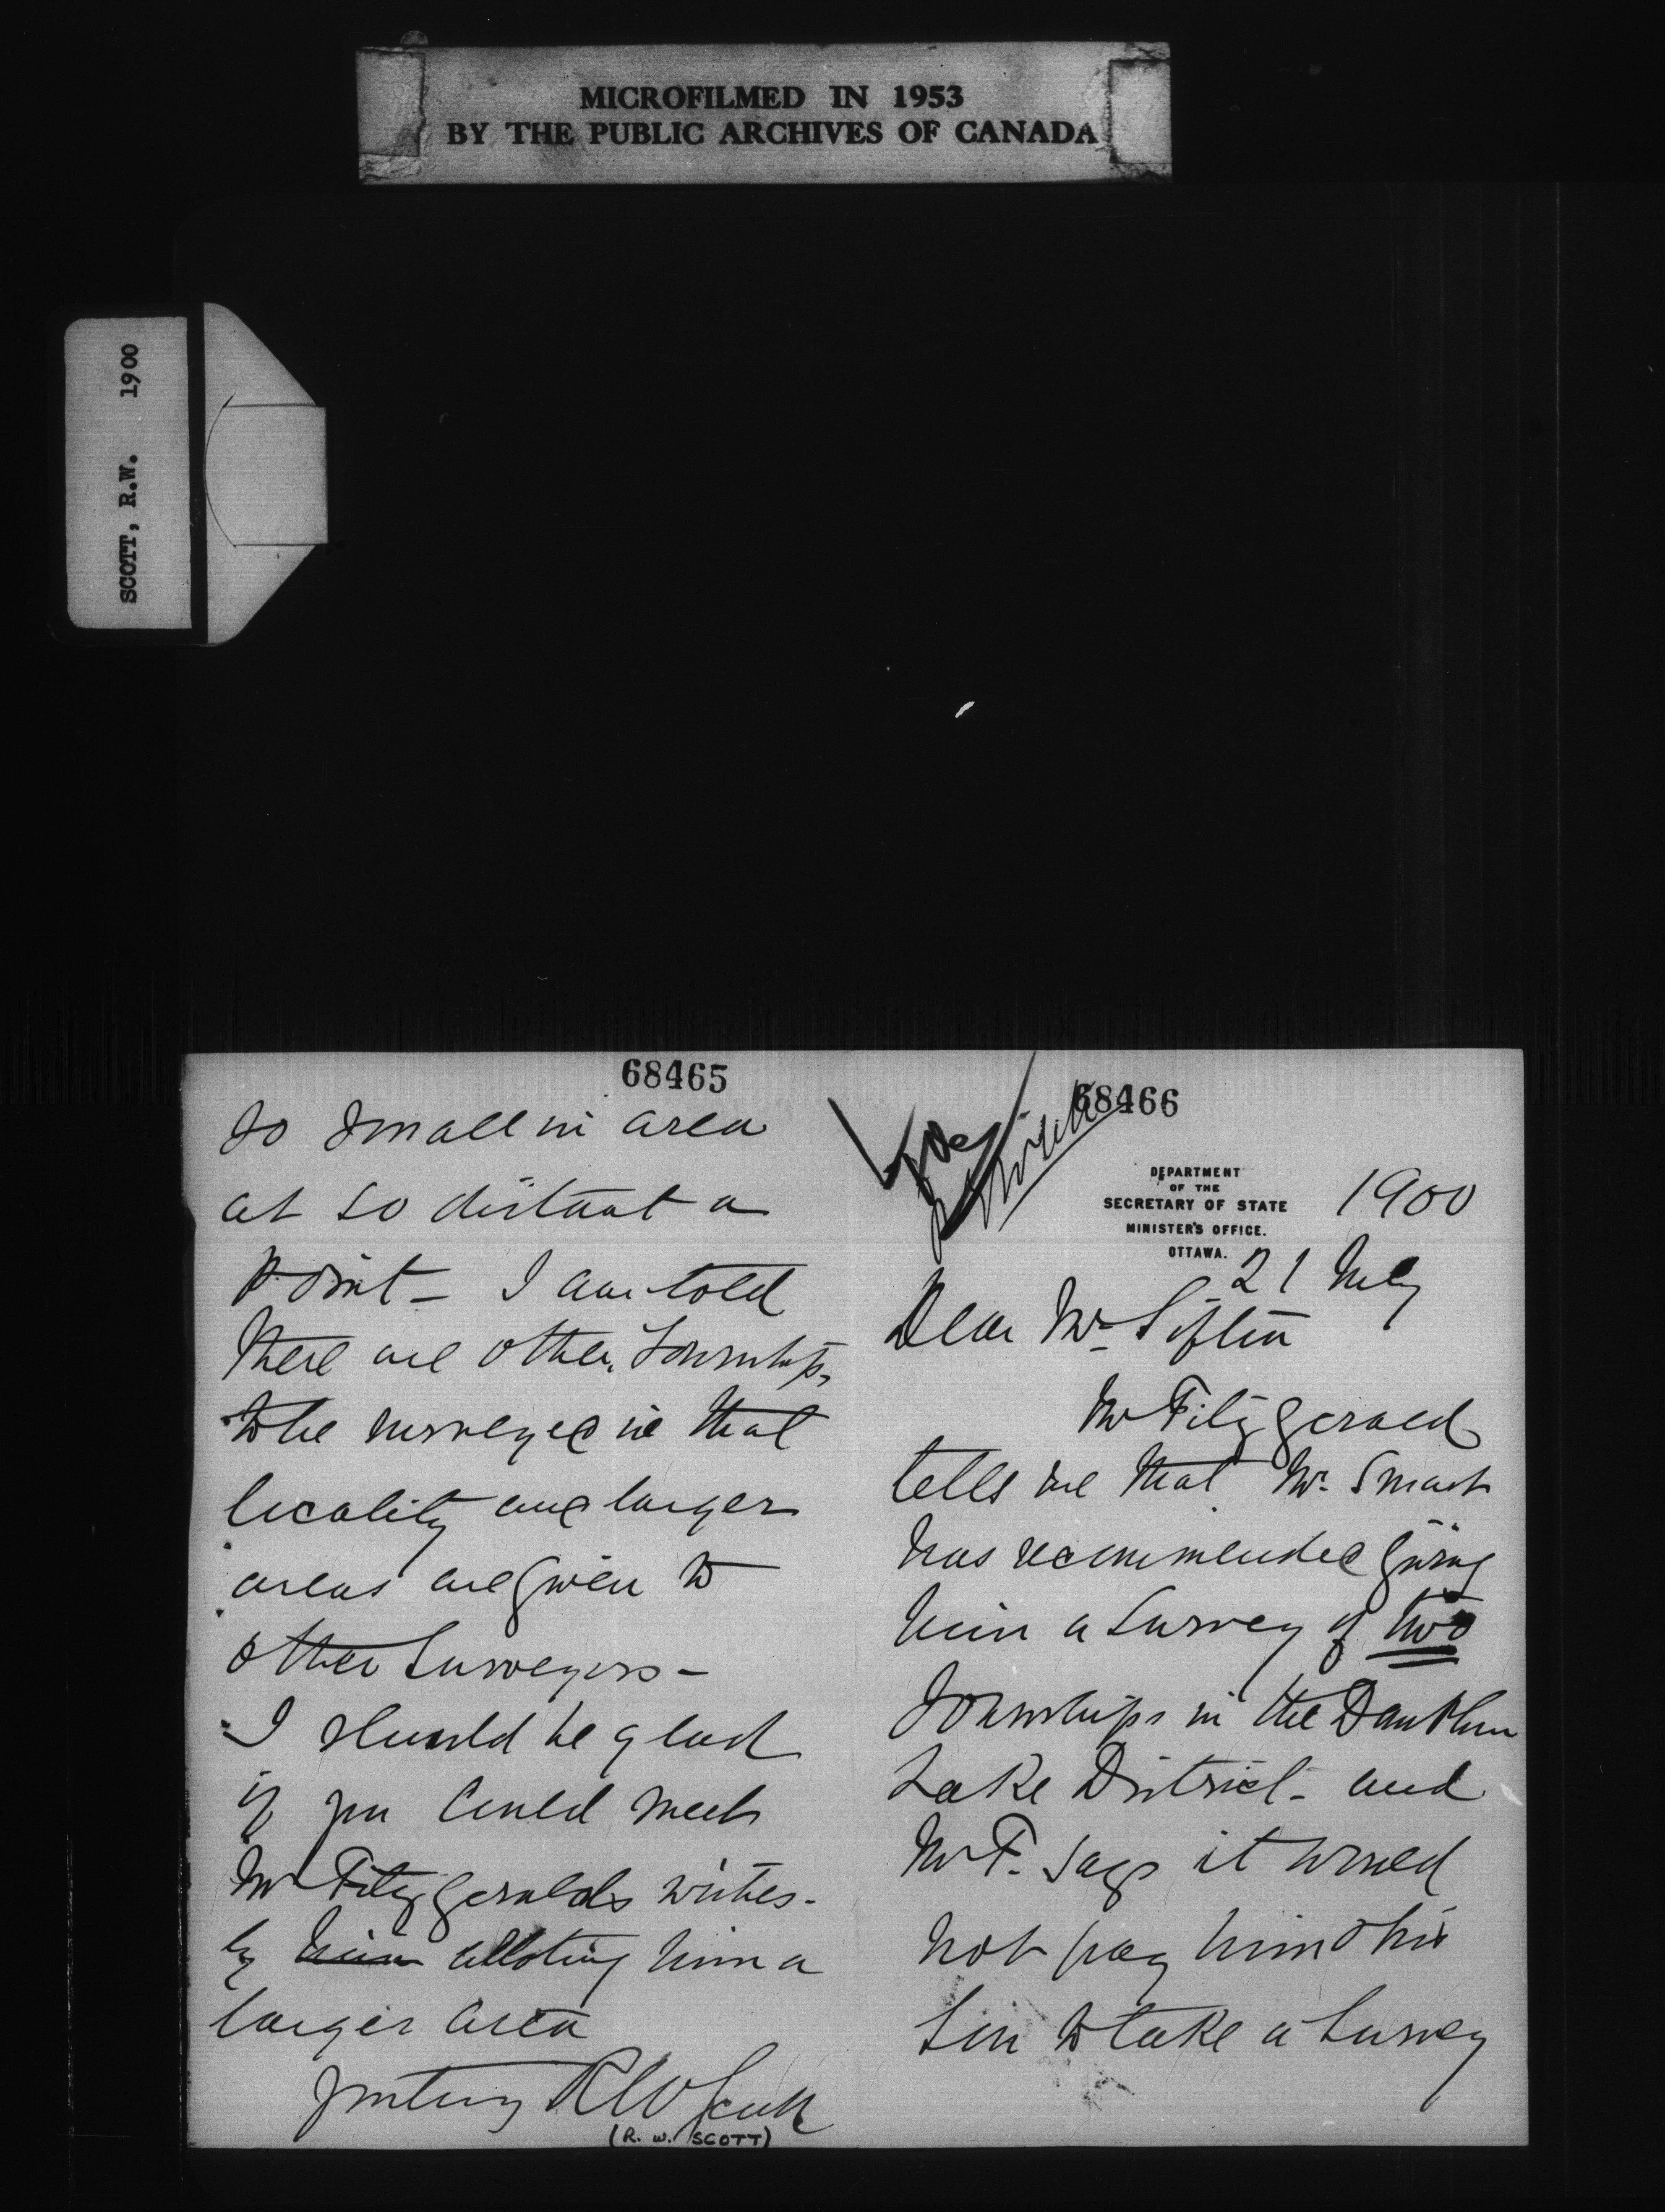 MICROFILMED IN 1953
BY THE PUBLIC ARCHIVES OF CANADA
SCOTT, R.W. 1900
68466
DEPARTMENT
OF THE
SECRETARY OF STATE
MINISTER'S OFFICE.
OTTAWA.
1900
21
Dear Mr Sifton
Mr Fitzgerald
tells me that Mr. Smart
has recommended giving
him a survey of two
Townships in the Dauphin
Lake District - and
Mr F. says it would
not pay him & his
Son to take a survey
68465
so small in area
at so distant a
point - I am told
there are other Townships
to be surveyed in that
locality and larger
areas are given to
other Surveyors -
I should be glad
if you could meet
Mr Fitzgeralds wishes -
by him alloting him a
larger area
Yours truly R W Scott
(R. W. SCOTT)